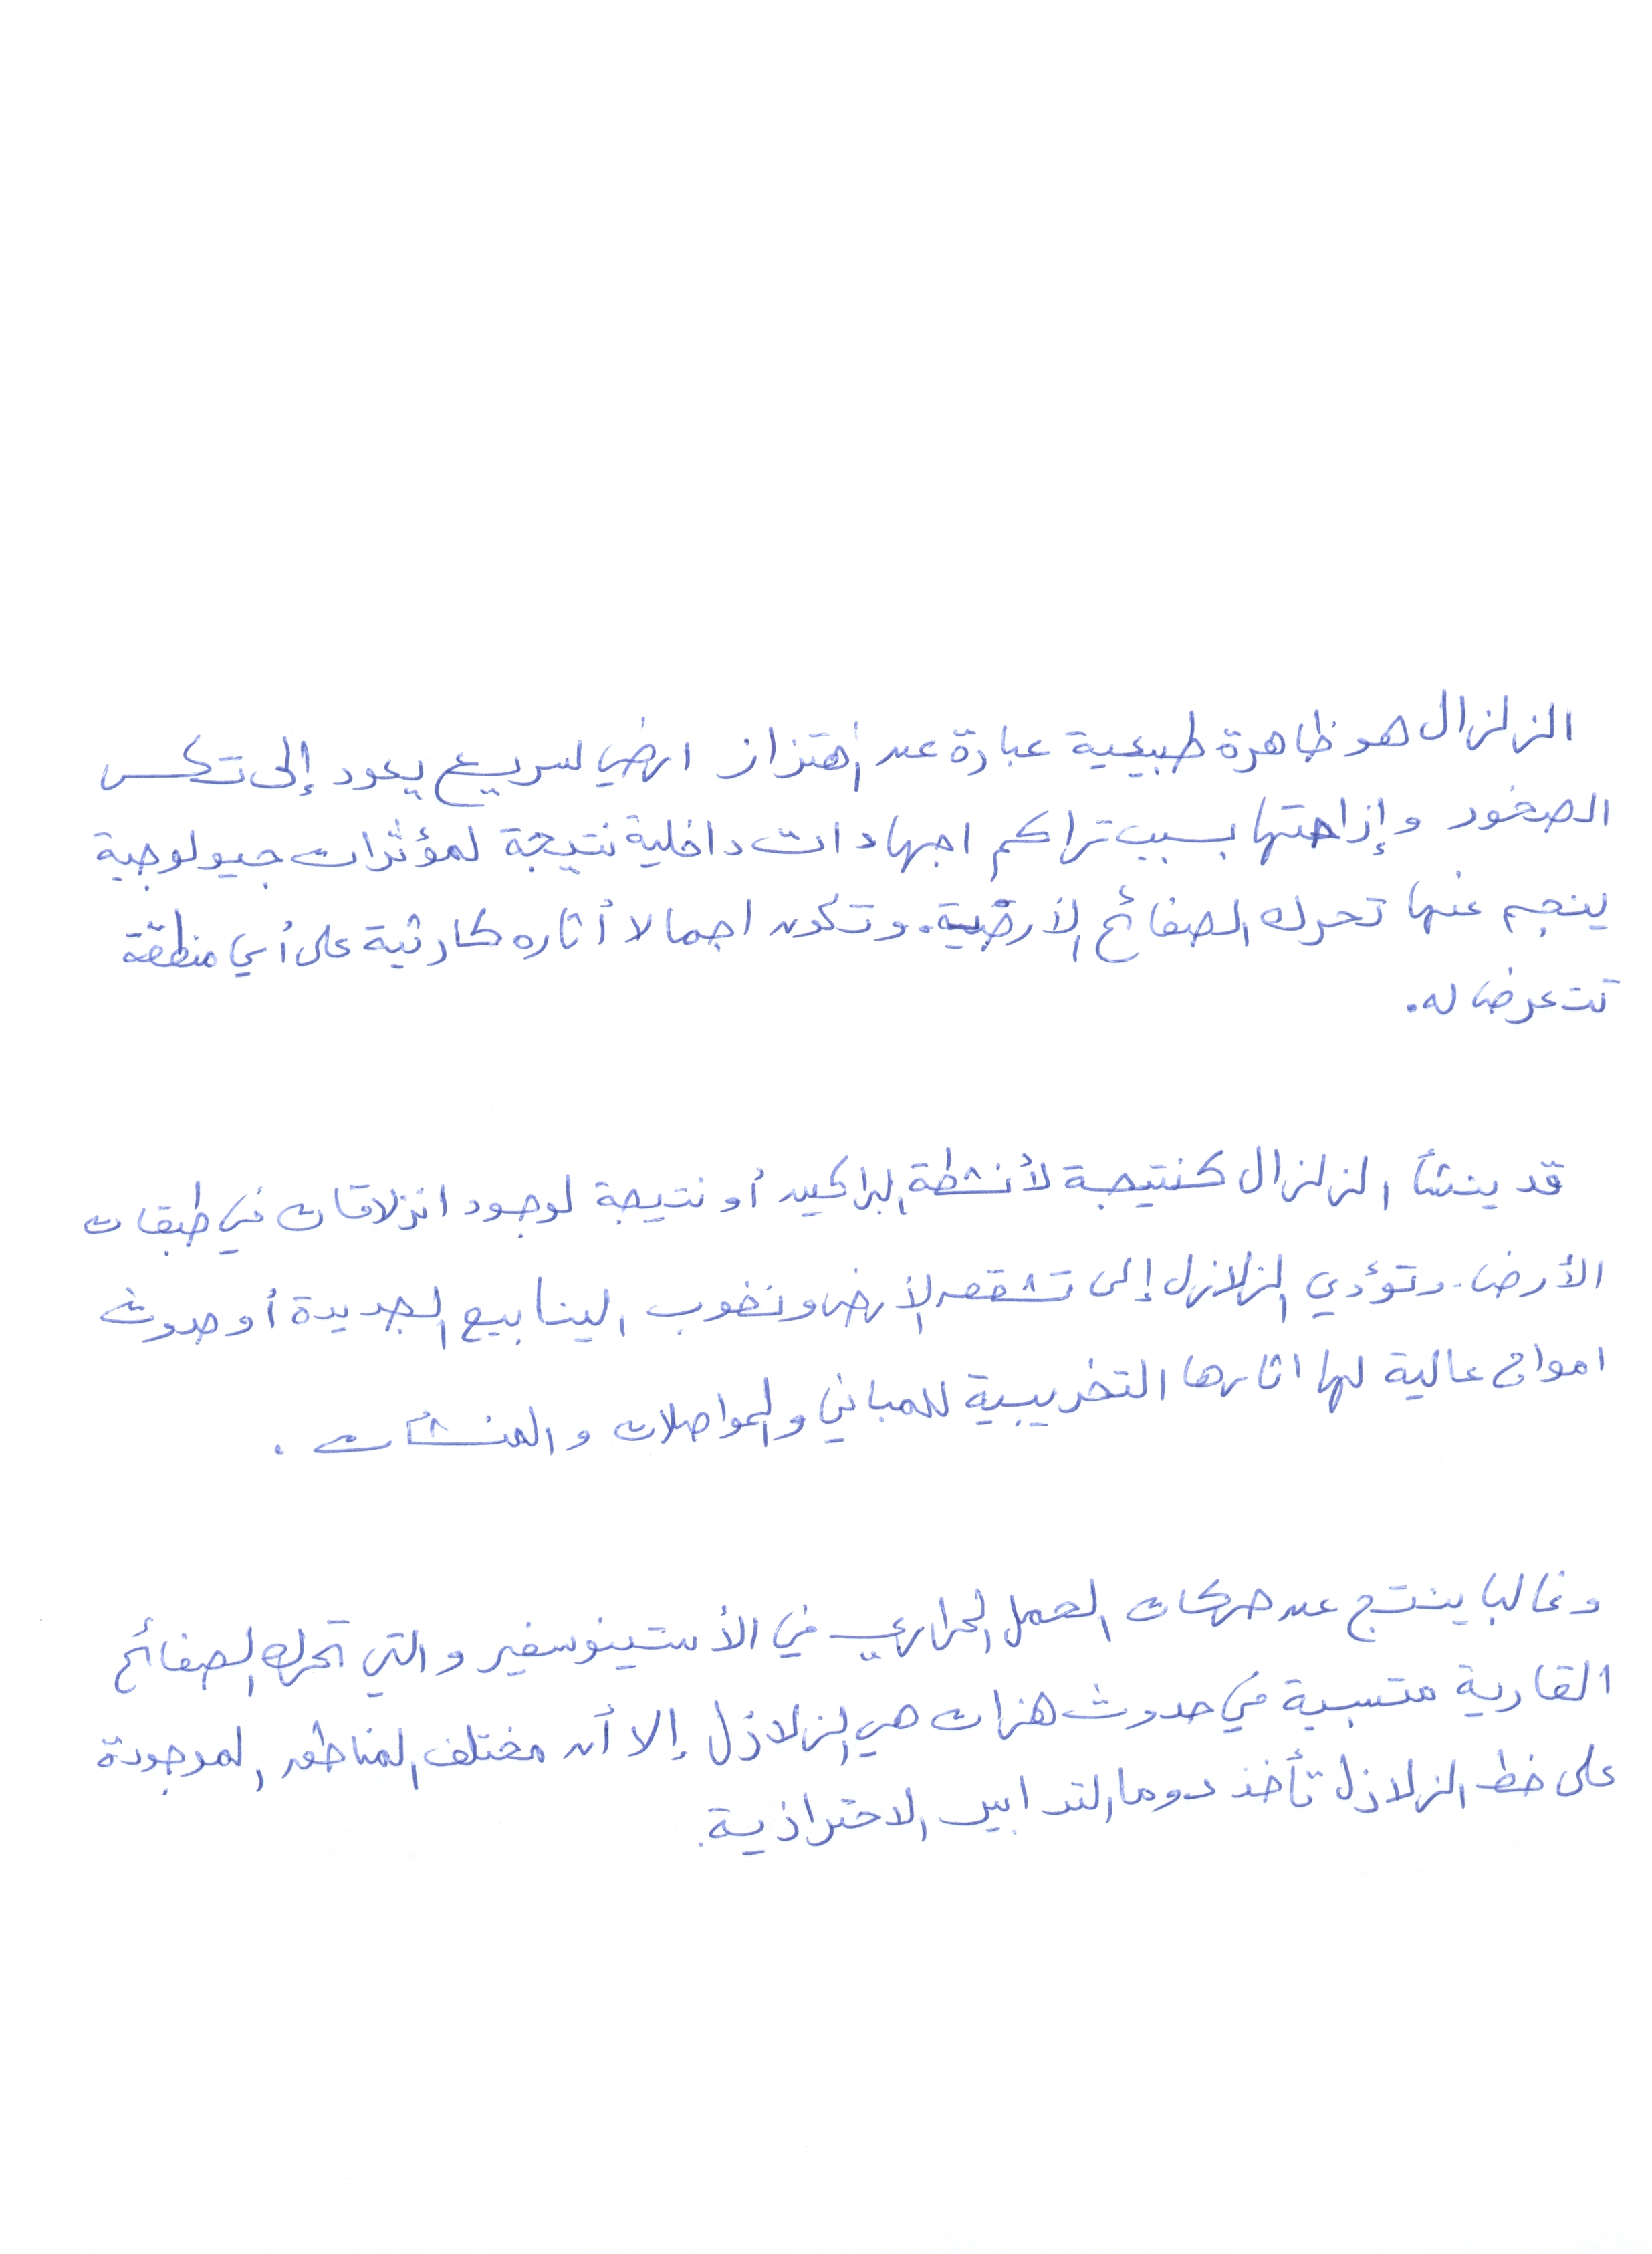 الزلزال هو ظاهرة طبيعية عبارة عن إهتزاز ارضي سريع يعود إلى تكسر
الصخور وإزاحتها بسبب تراكم اجهادات داخلية نتيجة لمؤثرات جيولوجية
ينجم عنها تحرك الصفائح الأرضية. وتكون اجمالا أثاره كارثية على أي منطقة
تتعرض له.
قد ينشأ الزلزال كنتيجة لأنشطة البراكين أو نتيجة لوجود انزلاقات في طبقات
الأرض. وتؤدي الزلازل إلى تشقق الأرض ونضوب الينابيع الجديدة أو حدوث
امواج عالية لها اثارها التخريبية للمباني والمواصلات والمنشآت.
وغالبا ينتج عن حركات الحمل الحراري في الأستينوسفير والتي تحرك الصفائح
القارية متسببة في حدوث هزات هي الزلازل إلا أن مختلف المناطق الموجودة
على خط الزلازل تأخذ دوما التدابير الاحترازية.